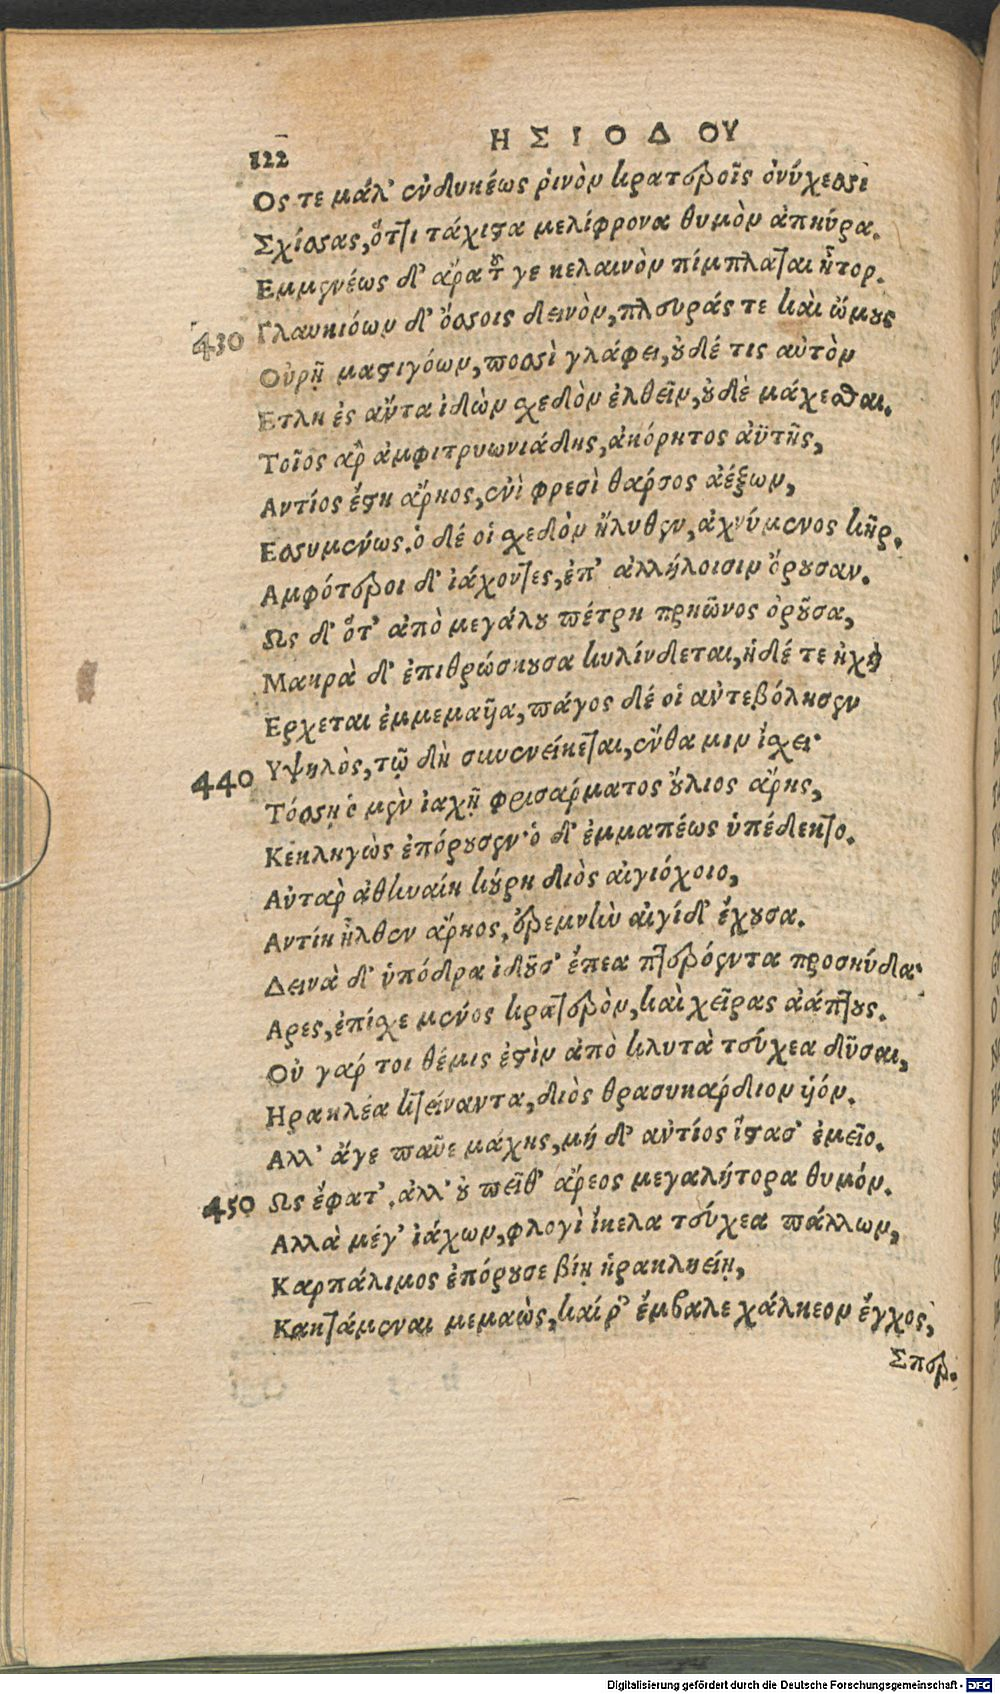 ΗΣΙΟΔΟΥ
122
Ος τε μάλ' ἐνδυκέως ῥινὸν κρατεροῖς ὀνύχεσσι
Σχίσσας, ὅττι τάχιστα μελίφρονα θυμὸν ἀπηύρα.
Εμμενέως δ' ἄρα τοῦ γε κελαινὸν πίμπλαται ἦτορ.
430 Γλαυκιόων δ' ὄσσοις δεινὸν, πλευράς τε καὶ ὤμους
Οὐρῇ μαστιγόων, ποσσὶ γλάφει, οὐδέ τις αὐτὸν
Ετλη ἐς ἄντα ἰδὼν σχεδὸν ἐλθεῖν, οὐδὲ μάχεσθαι.
Τοῖος ἄρ' ἀμφιτρυωνιάδης, ἀκόρητος ἀϋτῆς,
Αντίος ἔστη ἄρηος, ἐνὶ φρεσὶ θαρσος ἀέξων,
Εσσυμένως. ὁ δέ οἱ σχεδὸν ἤλυθεν, ἀχνύμενος κῆρ.
Αμφότεροι δ' ἰάχοντες, ἐπ' ἀλλήλοισιν ὄρουσαν.
Ως δ' ὅτ' ἀπὸ μεγάλου πέτρη πρηῶνος ὀροῦσα,
Μακρὰ δ' ἐπιθρώσκουσα κυλίνδεται, ἡδέ τε ἠχῇ
Ερχεται ἐμμεμαυῖα, πάγος δέ οἱ ἀντεβόλησεν
440 Υψηλὸς, τῷ δὴ συνενείκεται, ἔνθα μιν ἴσχει·
Τόσσῃ ὁ μὲν ἰαχῇ φρισαρματος οὔλιος ἄρης,
Κεκληγὼς ἐπόρουσεν· ὁ δ' ἐμμαπέως ὑπέδεκτο.
Αὐταρ ἀθηναίη κούρη διὸς αἰγιόχοιο,
Αντίη ἦλθεν ἄρηος, ἐρεμνὴν αἰγίδ' ἔχουσα.
Δεινὰ δ' ὑπόδρα ἰδοῦσ' ἔπεα πτερόεντα προσηύδα·
Αρες, ἐπίσχε μένος κρατερὸν, καὶ χεῖρας ἀάπτους.
Οὐ γάρ τοι θέμις ἐστὶν ἀπὸ κλυτὰ τεύχεα δῦσαι,
Ηρακλέα κτείναντα, διὸς θρασυκάρδιον υἱόν.
Αλλ' ἄγε παῦε μάχης, μή δ' ἀντίος ἵστασ' ἐμεῖο.
450 Ως ἔφατ'. ἀλλ' οὐ πεῖθ' ἄρεος μεγαλήτορα θυμόν.
Αλλὰ μέγ' ἰάχων, φλογὶ ἴκελα τεύχεα πάλλων,
Καρπάλιμος ἐπόρουσε βίῃ ἡρακληείῃ,
Κακτάμεναι μεμαὼς, καί ῥ' ἔμβαλε χάλκεον ἔγχος,
Σπερ.
Digitalisierung gefördert durch die Deutsche Forschungsgemeinschaft - DFG